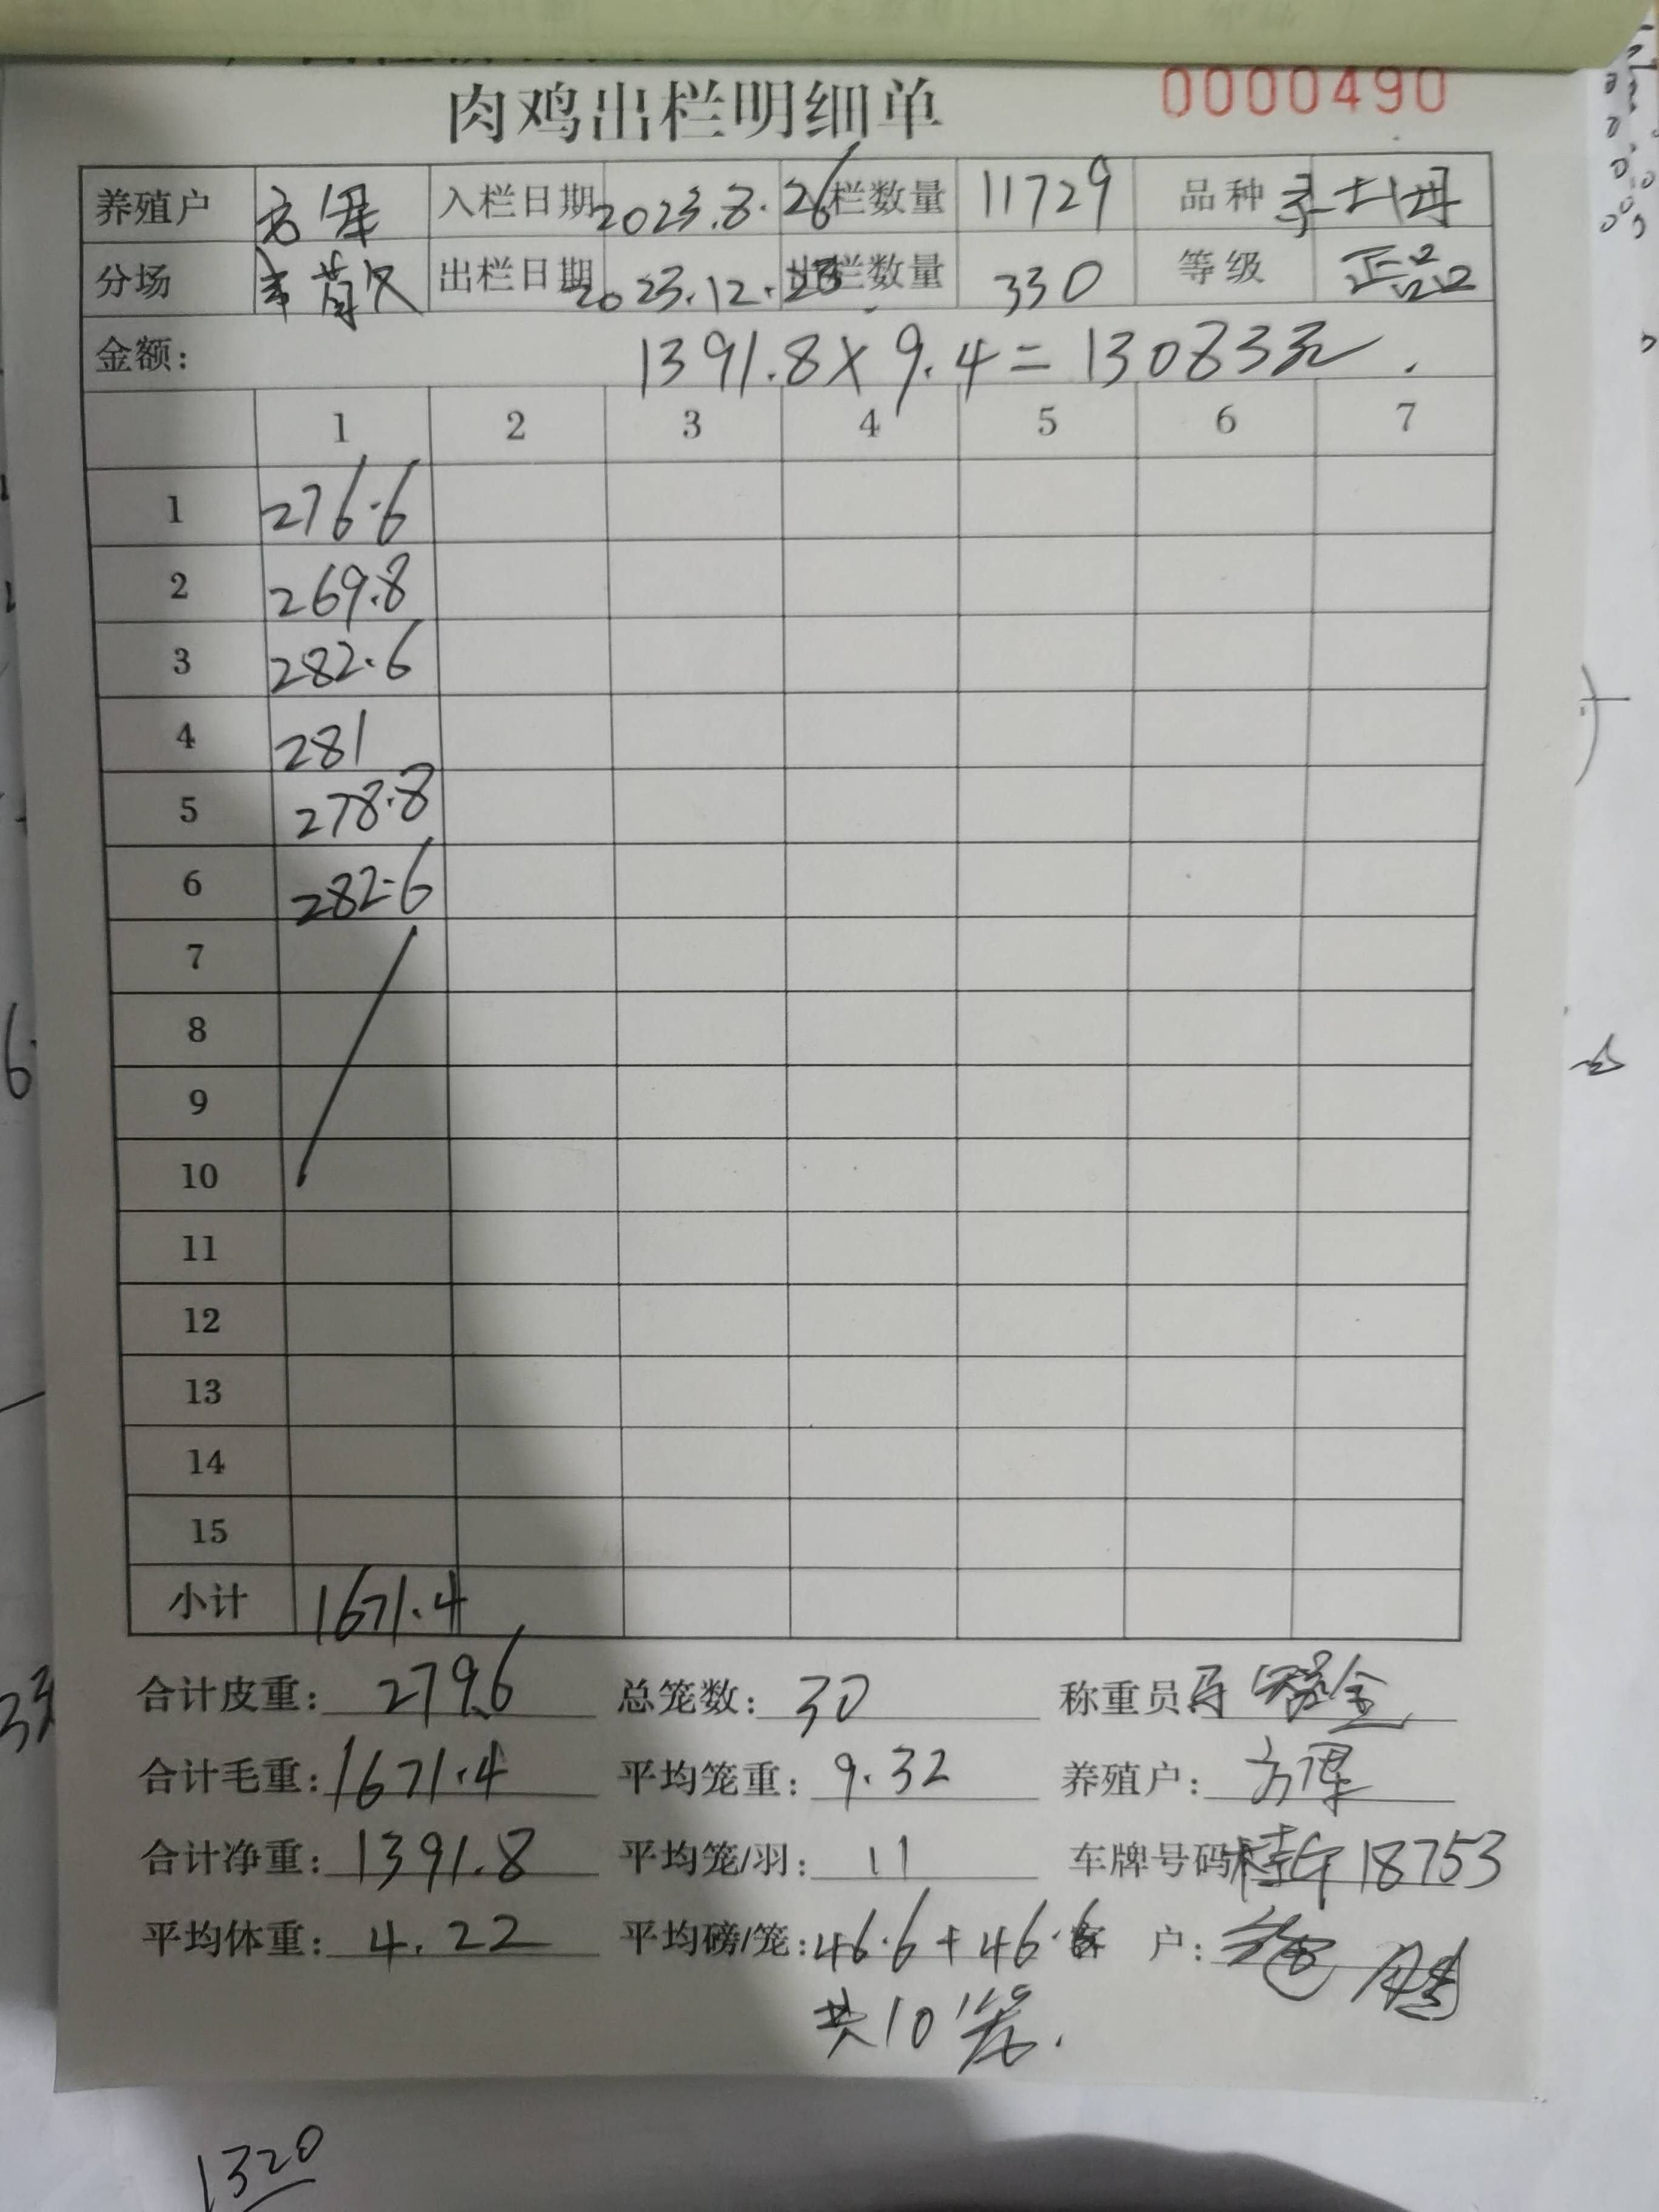 肉鸡出栏明细单 0000490
养殖户 方军 入栏日期 2023.8.26 栏数量 11729 品种 土
分场 出栏日期 2023.12.23 出栏数量 330 等级 正品
金额: 1391.8×9.4=13083元.
1 2 3 4 5 6 7
1 276.6
2 269.8
3 282.6
4 281
5 278.8
6 282.6
7
8
9
10
11
12
13
14
15
小计 1671.4
合计皮重: 279.6 总笼数: 30 称重员
合计毛重: 1671.4 平均笼重: 9.32 养殖户: 方军
合计净重: 1391.8 平均笼/羽: 11 车牌号码 桂 18753
平均体重: 4.22 平均磅/笼: 46.6+46.6 客 户:
共10笼.
1320